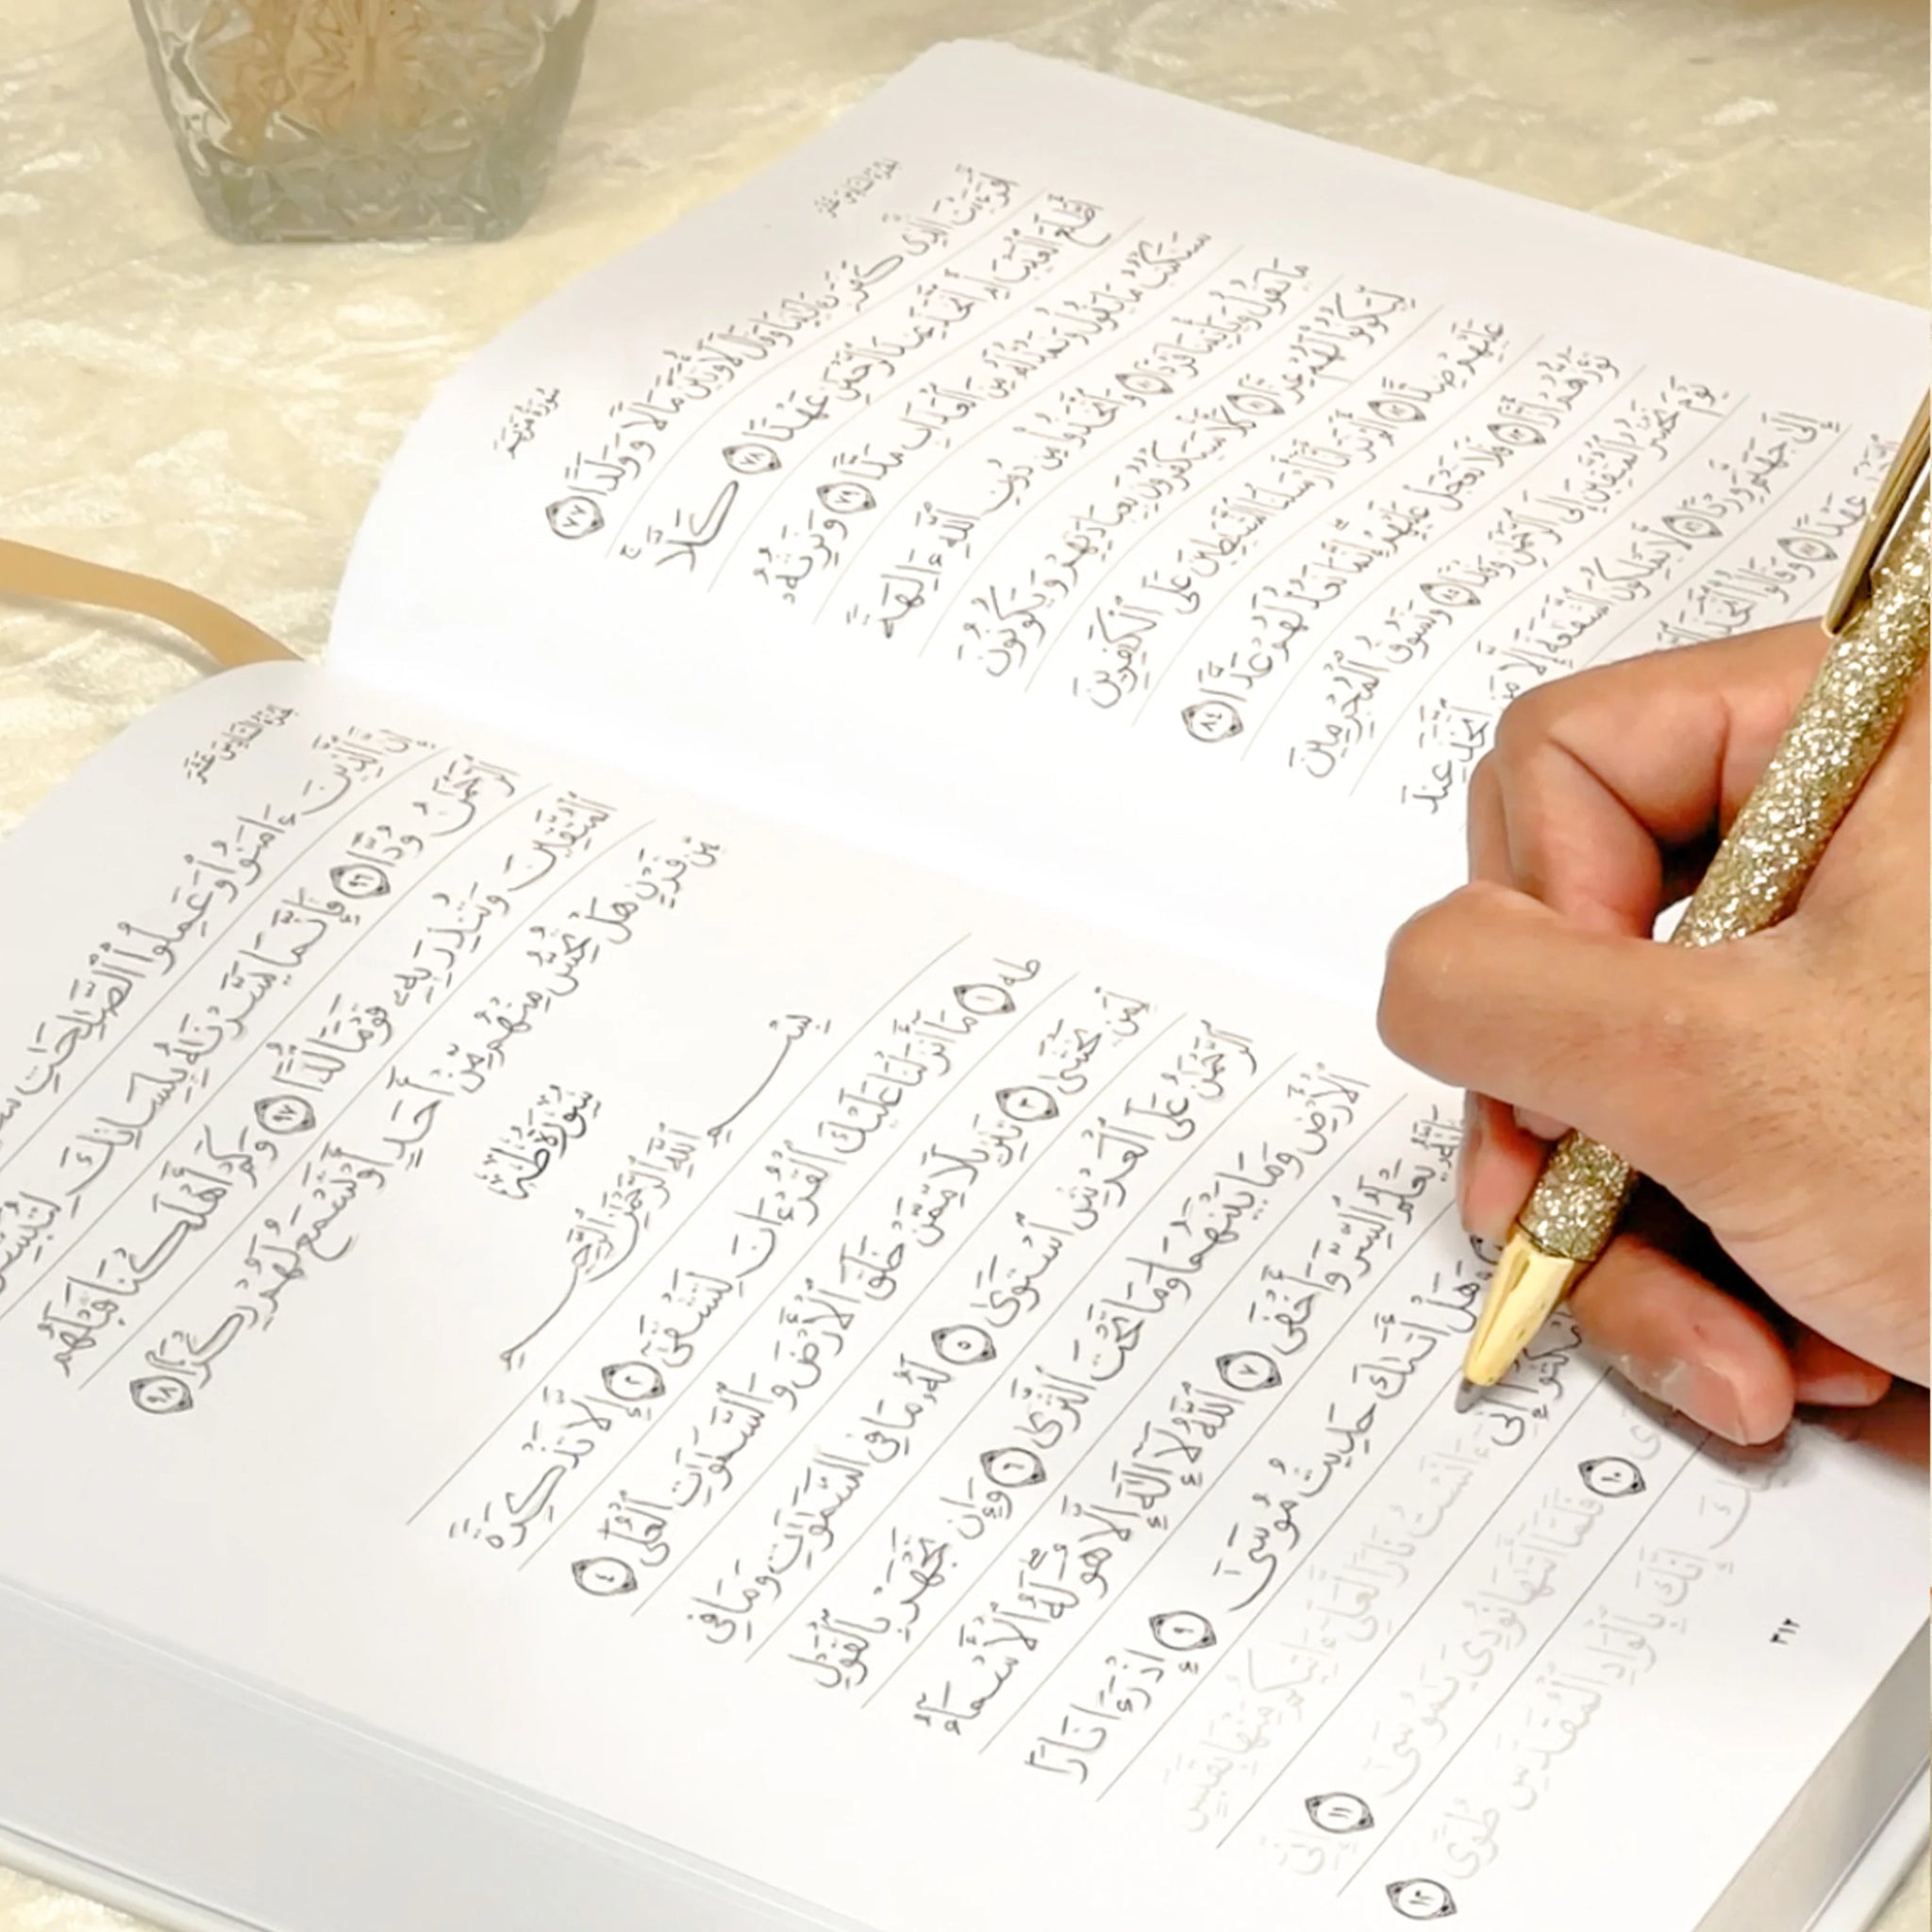 الجزء السادس عشر
سُورَةُ مَرْيَمَ
أَفَرَءَيْتَ ٱلَّذِى كَفَرَ بِـَٔايَٰتِنَا وَقَالَ لَأُوتَيَنَّ مَالًا وَوَلَدًا ٧٧
أَطَّلَعَ ٱلْغَيْبَ أَمِ ٱتَّخَذَ عِندَ ٱلرَّحْمَٰنِ عَهْدًا ٧٨ كَلَّا ۚ
سَنَكْتُبُ مَا يَقُولُ وَنَمُدُّ لَهُۥ مِنَ ٱلْعَذَابِ مَدًّا ٧٩ وَنَرِثُهُۥ
مَا يَقُولُ وَيَأْتِينَا فَرْدًا ٨٠ وَٱتَّخَذُوا۟ مِن دُونِ ٱللَّهِ ءَالِهَةً
لِّيَكُونُوا۟ لَهُمْ عِزًّا ٨١ كَلَّا ۚ سَيَكْفُرُونَ بِعِبَادَتِهِمْ وَيَكُونُونَ
عَلَيْهِمْ ضِدًّا ٨٢ أَلَمْ تَرَ أَنَّآ أَرْسَلْنَا ٱلشَّيَٰطِينَ عَلَى ٱلْكَٰفِرِينَ
تَؤُزُّهُمْ أَزًّا ٨٣ فَلَا تَعْجَلْ عَلَيْهِمْ ۖ إِنَّمَا نَعُدُّ لَهُمْ عَدًّا ٨٤
يَوْمَ نَحْشُرُ ٱلْمُتَّقِينَ إِلَى ٱلرَّحْمَٰنِ وَفْدًا ٨٥ وَنَسُوقُ ٱلْمُجْرِمِينَ
إِلَىٰ جَهَنَّمَ وِرْدًا ٨٦ لَّا يَمْلِكُونَ ٱلشَّفَٰعَةَ إِلَّا مَنِ ٱتَّخَذَ عِندَ
ٱلرَّحْمَٰنِ عَهْدًا ٨٧ وَقَالُوا۟ ٱتَّخَذَ
الجزء السادس عشر
إِنَّ ٱلَّذِينَ ءَامَنُوا۟ وَعَمِلُوا۟ ٱلصَّٰلِحَٰتِ
ٱلرَّحْمَٰنُ وُدًّا ٩٦ فَإِنَّمَا يَسَّرْنَٰهُ بِلِسَانِكَ
ٱلْمُتَّقِينَ وَتُنذِرَ بِهِۦ قَوْمًا لُّدًّا ٩٧ وَكَمْ أَهْلَكْنَا قَبْلَهُم
مِّن قَرْنٍ هَلْ تُحِسُّ مِنْهُم مِّنْ أَحَدٍ أَوْ تَسْمَعُ لَهُمْ رِكْزًا ٩٨
سُورَةُ طه
بِسْمِ ٱللَّهِ ٱلرَّحْمَٰنِ ٱلرَّحِيمِ
طه ١ مَآ أَنزَلْنَا عَلَيْكَ ٱلْقُرْءَانَ لِتَشْقَىٰٓ ٢ إِلَّا تَذْكِرَةً
لِّمَن يَخْشَىٰ ٣ تَنزِيلًا مِّمَّنْ خَلَقَ ٱلْأَرْضَ وَٱلسَّمَٰوَٰتِ ٱلْعُلَى ٤
ٱلرَّحْمَٰنُ عَلَى ٱلْعَرْشِ ٱسْتَوَىٰ ٥ لَهُۥ مَا فِى ٱلسَّمَٰوَٰتِ وَمَا فِى
ٱلْأَرْضِ وَمَا بَيْنَهُمَا وَمَا تَحْتَ ٱلثَّرَىٰ ٦ وَإِن تَجْهَرْ بِٱلْقَوْلِ
فَإِنَّهُۥ يَعْلَمُ ٱلسِّرَّ وَأَخْفَى ٧ ٱللَّهُ لَآ إِلَٰهَ إِلَّا هُوَ ۖ لَهُ ٱلْأَسْمَآءُ
وَهَلْ أَتَىٰكَ حَدِيثُ مُوسَىٰٓ ٩ إِذْ رَءَا نَارًا
ٱمْكُثُوٓا۟ إِنِّىٓ ءَانَسْتُ نَارًا لَّعَلِّىٓ ءَاتِيكُم مِّنْهَا بِقَبَسٍ
١٠ فَلَمَّآ أَتَىٰهَا نُودِىَ يَٰمُوسَىٰٓ ١١ إِنِّىٓ
إِنَّكَ بِٱلْوَادِ ٱلْمُقَدَّسِ طُوًى ١٢
٣١٢